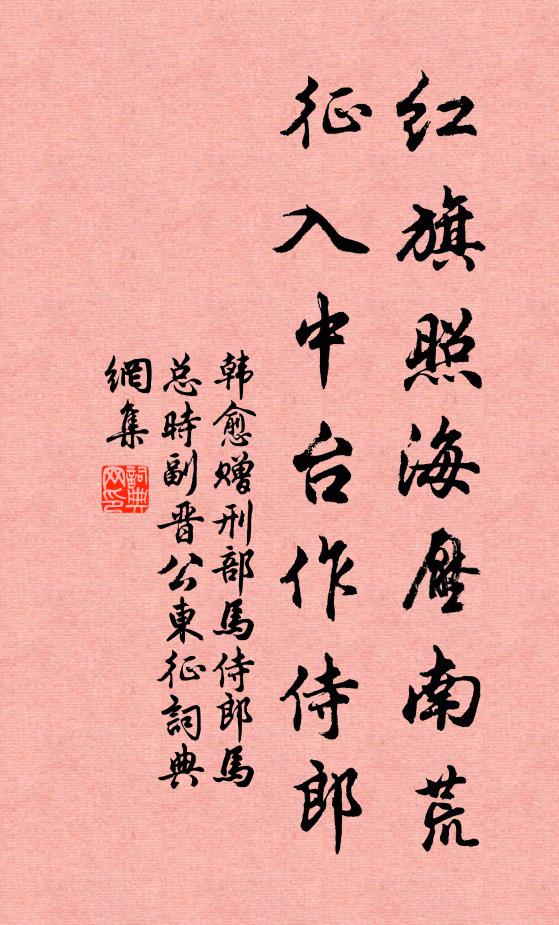 红旗照海压南荒
征入中台作侍郎
韩愈赠刑部馬侍郎馬
总時副晋公東征詞典
網集
詞典
网印